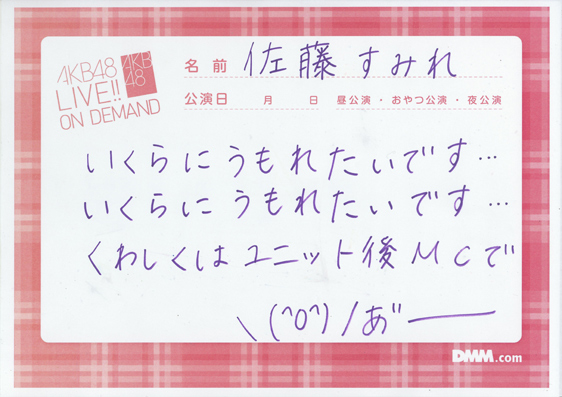 AKB48
LIVE!!
ON DEMAND
AKB
48
名前 佐藤すみれ
公演日 月 日 昼公演・おやつ公演・夜公演
いくらにうもれたいです…
いくらにうもれたいです…
くわしくはユニット後MCで
\(^o^)/あ゛ー
DMM.com